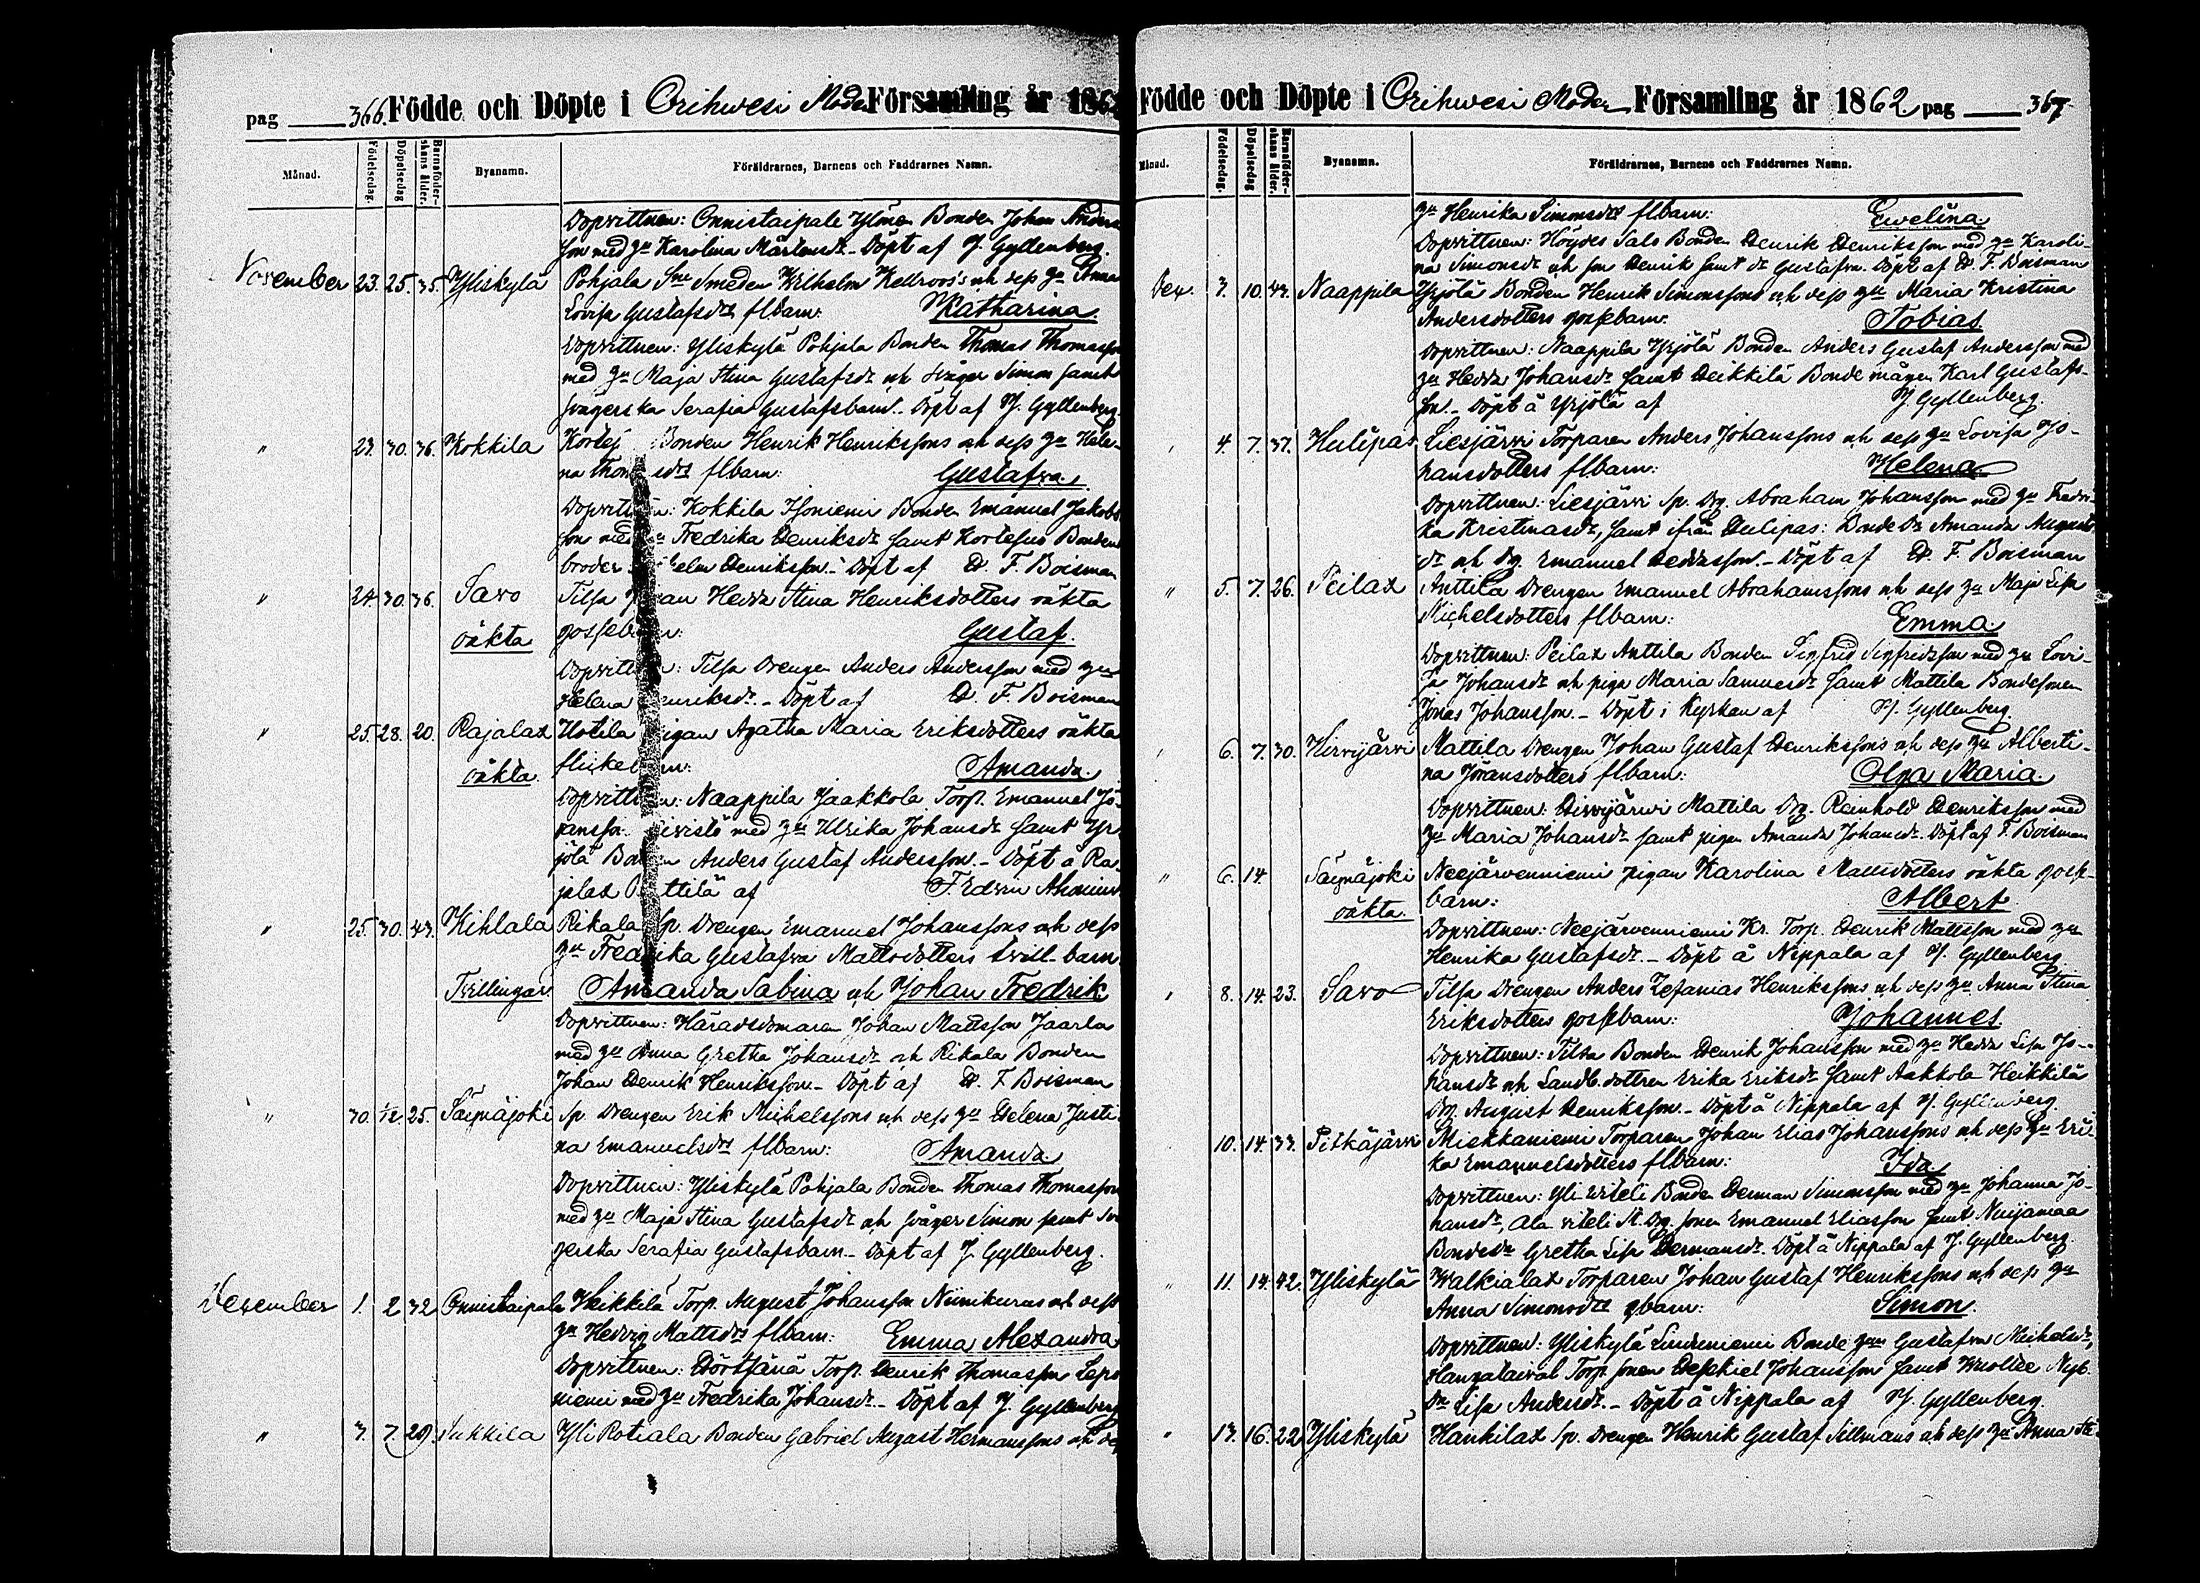 pag 366. Födde och Döpte i Orihwesi Moder Församling år 1862
Månad. Födelsedag. Döpelsedag Barnaföderskans ålder. Byanamn. Föräldrarnes, Barnens och Faddrarnes Namn.
Dopvittnen: Onnistaipale Ylönen Bonden Johan Anders
son med hu Karolina Mårtensdr. Döpt af J. Gyllenberg.
November 23. 25. 35. Yliskylä Pohjala Smeden Wilhelm Hellroos's och dess hu Anna
Lovisa Gustafsdrs flbarn: Katharina.
Dopvittnen: Yliskylä Pohjala Bonden Thomas Thomasson
med hu Maja Stina Gustafsdr och svåger Simon samt
svägerska Serafia Gustafsbarn. Döpt af J. Gyllenberg.
" 23. 30. 36. Kokkila Bonden Henrik Henrikssons och dess hu Hele-
na flbarn: Gustafva.
Kokkila Isoniemi Bonden Emanuel Jakobs
son med Fredrika Henriksdr samt Bonden
broder Henriksson. Döpt af D. F. Boisman
" 24. 30. 36. Savo Tilsa Hedda Stina Henriksdotters oäkta
oäkta gossebarn: Gustaf.
Dopvittnen: Tilsa Drengen Anders Andersson med hu
Helena Henriksdr. Döpt af D. F. Boisman
" 25. 28. 20. Rajalax Hotila Pigan Agatha Maria Eriksdotters oäkta
oäkta. Amanda.
Dopvittnen: Naappila Jaakkola Torp. Emanuel Jo-
med hu Ulrika Johansdr samt Yr-
jölä Bonden Anders Gustaf Andersson. Döpt å Ra-
jalax af
" 25. 30. 43. Kihlala Rikala Sp. Drengen Emanuel Johanssons och dess
hu Fredrika Gustafva Mattsdotters tvill-barn
Tvillingar. Amanda Sabina och Johan Fredrik
Dopvittnen: Häradsdomaren Johan Mattsson Jaarla
med hu Anna Gretha Johansdr och Rikala Bonden
Johan Henrik Henriksson. Döpt af D. F. Boisman
" 30. 1/12 25. Säynäjoki Sp. Drengen Erik Michelssons och dess hu Helena Justi-
na Emanuelsdrs flbarn: Amanda.
Dopvittnen: Yliskylä Pohjala Bonden Thomas Thomasson
med hu Maja Stina Gustafsdr och svåger Simon samt svä
gerska Serafia Gustafsbarn. Döpt af J. Gyllenberg.
December 1. 2 32 Onnistaipale Heikkilä Torp. August Johansson Niinikuras och dess
hu Hedvig Mattsdrs flbarn: Emma Alexandra
Dopvittnen: Torp. Henrik Thomasson Lepo
niemi med hu Fredrika Johansdr. Döpt af J. Gyllenberg
" 3. 7. 29. Sukkila Yli Rotiala Bonden Gabriel August Hermanssons och de
Födde och Döpte i Orihwesi Moder Församling år 1862 pag 367
Månad. Födelsedag. Döpelsedag Barnaföderskans ålder. Byanamn. Föräldrarnes, Barnens och Faddrarnes Namn.
hu Henrika Simonsdrs flbarn: Ewelina.
Dopvittnen: Höydes Salo Bonden Henrik Henriksson med hu Karoli-
na Simonsdr och son Henrik samt dr Gustafva. Döpt af D. F. Boisman
Dec. 3. 10. 43. Naappila Yrjölä Bonden Henrik Simonssons och dess hu Maria Kristina
Andersdotters gossebarn: Tobias.
Dopvittnen: Naappila Yrjölä Bonden Anders Gustaf Andersson med
hu Hedda Johansdr samt Heikkilä Bonde mågen Karl Gustafs-
son. Döpt å Yrjölä af J. Gyllenberg.
4. 7. 37. Hulipas Liesjärvi Torparen Anders Johanssons och dess hu Lovisa Jo-
hansdotters flbarn: Helena
Dopvittnen: Liesjärvi Sp. Drg. Abraham Johansson med hu Fredri-
ka Kristinasdr, samt ifrån Hulipas: Bonde Dr Amanda Augusts
dr och Drg. Emanuel Heddasson. Döpt af D. F. Boisman
" 5. 7. 26. Peilax Anttila Drengen Emanuel Abrahamssons och dess hu Maja Lisa
Michelsdotters flbarn: Emma.
Dopvittnen: Peilax Anttila Bonden Sigfrid Sigfridsson med hu Lovi-
sa Johansdr och piga Maria Samuelsdr samt Mattila Bondesonen
Jonas Johansson. Döpt i Kyrkan af J. Gyllenberg
6. 7. 30. Hirvijärvi Mattila Drengen Johan Gustaf Henrikssons och dess hu Alberti-
na Göransdotters flbarn: Olga Maria.
Dopvittnen: Hirvijärvi Mattila Drg. Reinhold Henriksson med
hu Maria Johansdr samt pigan Amanda Johansdr. Döpt af F. Boisman
" 6. 14. Säynäjoki Neejärvenniemi pigan Karolina Mattsdotters oäkta gosse-
oäkta. barn: Albert
Dopvittnen: Neejärvenniemi Kr. Torp. Henrik Mattsson med hu
Henrika Gustafsdr. Döpt å Nippala af J. Gyllenberg
8. 14. 23. Savo Tilsa Drengen Anders Zefanias Henrikssons och dess hu Anna Stina
Eriksdotters gossebarn: Johannes.
Dopvittnen: Tilsa Bonden Henrik Johansson med hu Hedda Lisa Jo-
hansdr och Landb. dottren Erika Eriksdr samt Aakkola Heikkilä
Drg. August Henriksson. Döpt å Nippala af J. Gyllenberg.
10. 14. 33. Pitkäjärvi Miekkaniemi Torparen Johan Elias Johanssons och dess hu Eri-
ka Emanuelsdotters flbarn: Ida
Dopvittnen: Yli Witeli Bonden Herman Simonsson med hu Johanna Jo-
hansdr, Ala Witeli Drg. sonen Emanuel Eliasson samt Nuijamaa
Bondedr Gretha Lisa Hermansdr. Döpt å Nippala af J. Gyllenberg
" 11. 14. 42. Yliskylä Walkialax Torparen Johan Gustaf Henrikssons och dess hu
Anna Simonsdrs gbarn: Simon.
Dopvittnen: Yliskylä Lindeniemi Bonde hu Gustafva Michelsdr,
Torp. sonen Heskiel Johansson samt
Dr Lisa Andersdr. Döpt å Nippala af J. Gyllenberg.
" 13. 16. 22 Yliskylä Hankilax Sp. Drengen Henrik Gustaf Sillmans och dess hu Anna Sti-